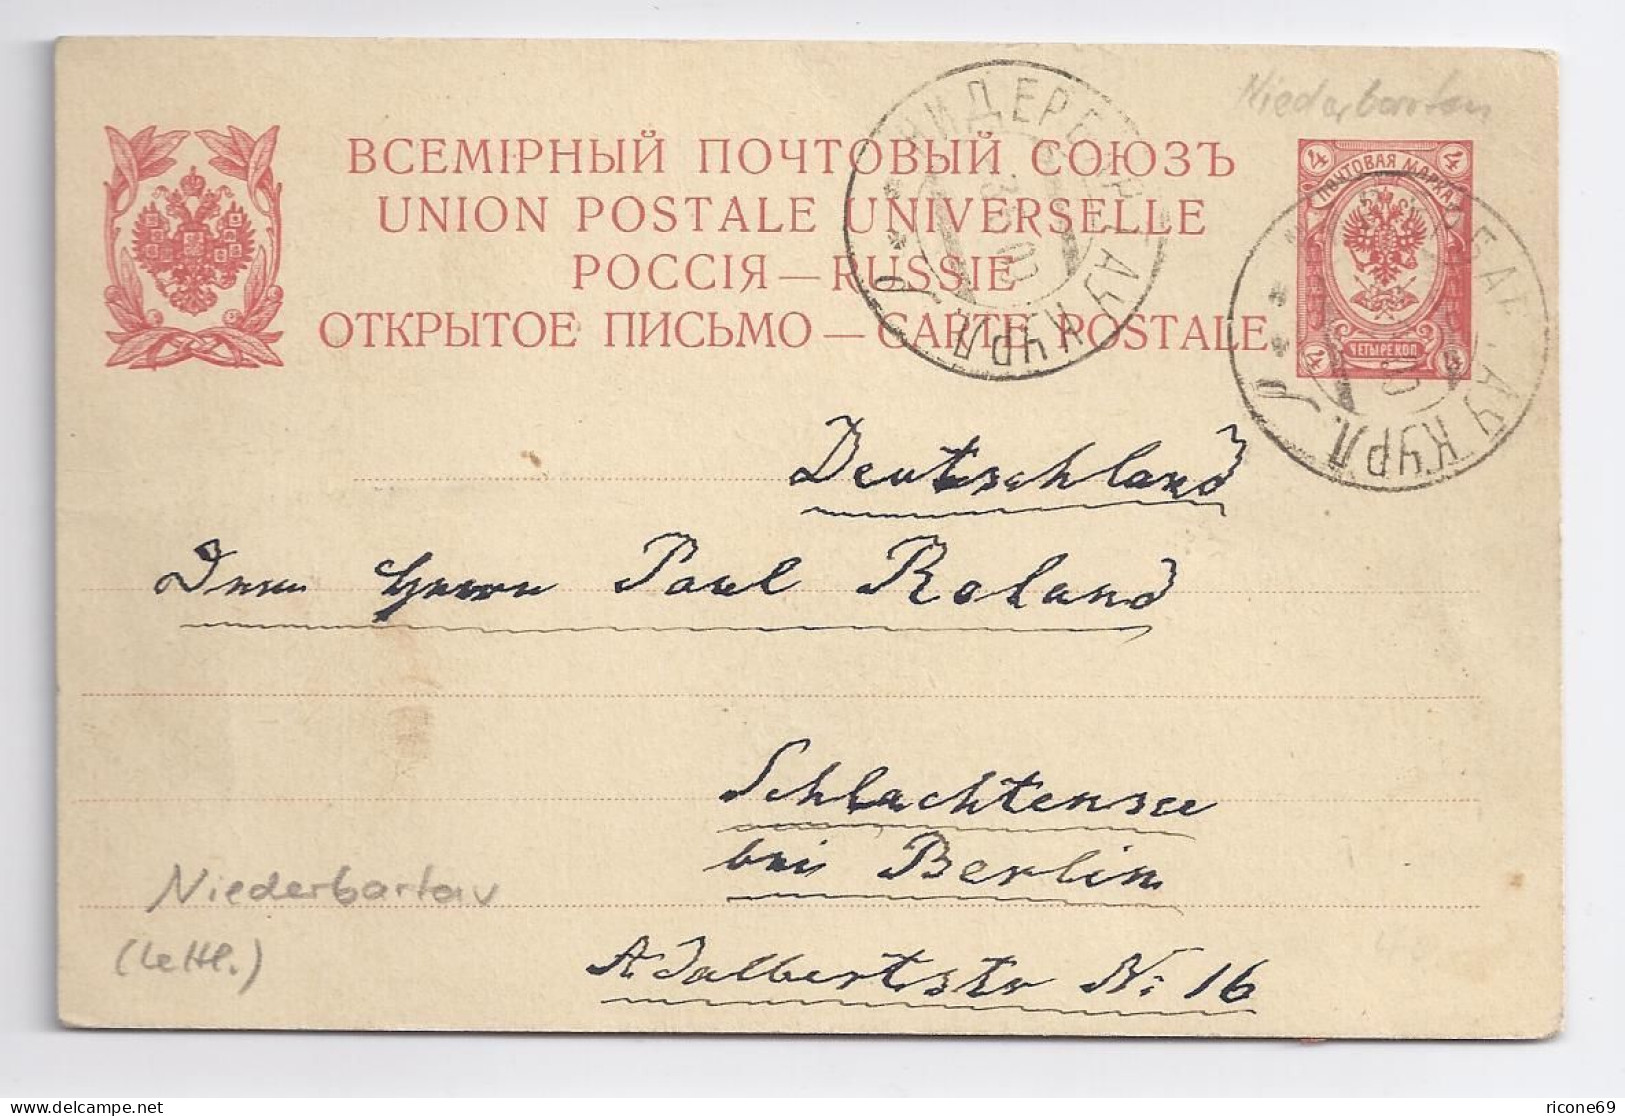 Niederbartau
ВСЕМІРНЫЙ ПОЧТОВЫЙ СОЮЗЪ
UNION POSTALE UNIVERSELLE
РОССІЯ — RUSSIE
ОТКРЫТОЕ ПИСЬМО — CARTE POSTALE
4 4
ПОЧТОВАЯ МАРКА
4 ЧЕТЫРЕ КОП 4
КУРЛ.
КУРЛ.
Deutschland
Paul Roland
Schlachtensee
bei Berlin
Adalbertstr No 16
Niederbartau
(Lettl.)
delcampe.net
ricone69